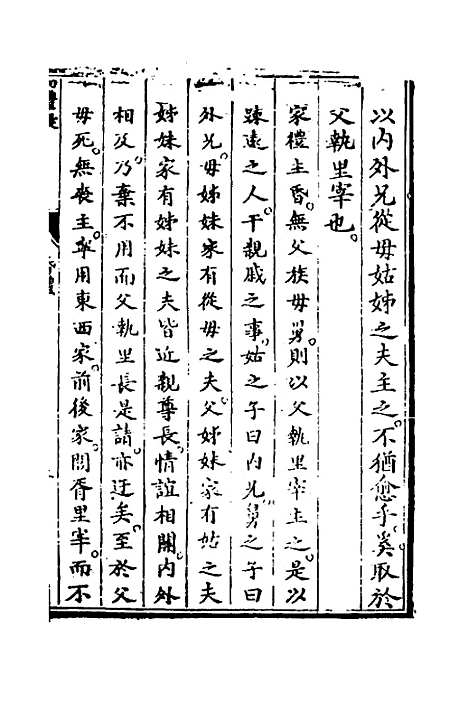 以內外兄從毋姑姊之夫主之。不猶愈乎。奚取於
父執里宰也。
家禮主昏。無父族毋舅。則以父執里宰主之。是以
踈遠之人。干親戚之事。姑之子曰內兄。舅之子曰
外兄。毋姊妹家有從毋之夫。父姊妹家有姑之夫
姊妹家有姊妹之夫。皆近親尊長。情誼相關。內外
相及。乃棄不用。而父執里長是請。亦迂矣。至於父
毋死。無喪主。卒用東西家。前後家。閭胥里宰。而不